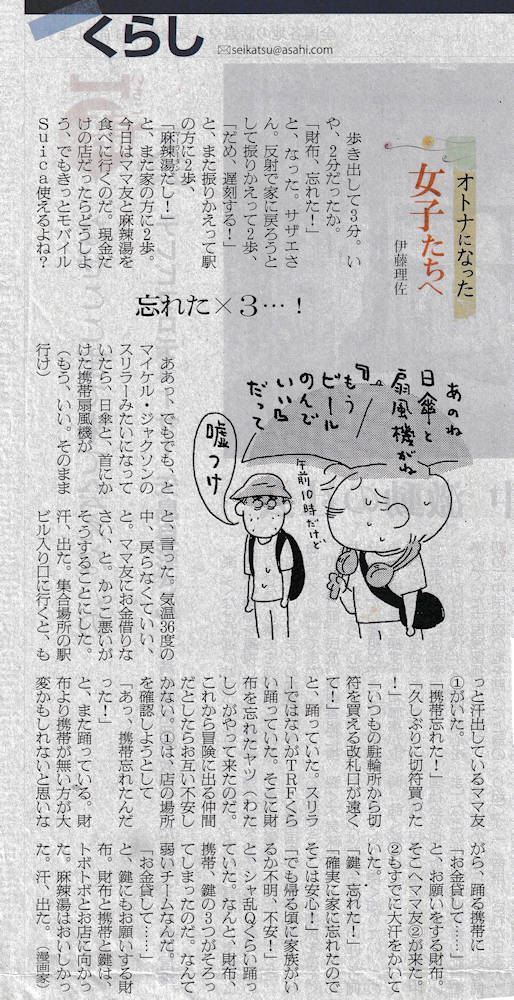 くらし
seikatsu@asahi.com
オトナになった
女子たちへ
伊藤理佐
忘れた×3…!
歩き出して3分。い
や、2分だったか。
「財布、忘れた!」
と、なった。サザエさ
ん。反射で家に戻ろうと
して振りかえって2歩、
「だめ、遅刻する!」
と、また振りかえって駅
の方に2歩、
「麻辣湯だし!」
と、また家の方に2歩。
今日はママ友と麻辣湯を
食べに行くのだ。現金だ
けの店だったらどうしよ
う、でもきっとモバイル
Suica使えるよね?
ああっ、でもでも、と
マイケル・ジャクソンの
スリラーみたいになって
いたら、日傘と、首にか
けた携帯扇風機が
(もう、いい。そのまま
行け)
と、言った。気温36度の
中、戻らなくていい、
と。ママ友にお金借りな
さい、と。かっこ悪いが
そうすることにした。
汗、出た。集合場所の駅
ビル入り口に行くと、も
っと汗出しているママ友
①がいた。
「携帯忘れた!」
「久しぶりに切符買った
!」
「いつもの駐輪所から切
符を買える改札口が遠く
て!」
と、踊っていた。スリラ
ーではないがTRFくら
い踊っていた。そこに財
布を忘れたヤツ(わた
し)がやって来たのだ。
これから冒険に出る仲間
だとしたらお互い不安し
かない。①は、店の場所
を確認しようとして
「あっ、携帯忘れたんだ
った!」
と、また踊っている。財
布より携帯が無い方が大
変かもしれないと思いな
がら、踊る携帯に
「お金貸して……」
と、お願いをする財布。
そこへママ友②が来た。
②もすでに大汗をかいて
いた。
「鍵、忘れた!」
「確実に家に忘れたので
そこは安心!」
「でも帰る頃に家族がい
るか不明、不安!」
と、シャ乱Qくらい踊っ
ていた。なんと、財布、
携帯、鍵の3つがそろっ
てしまったのだ。なんて
弱いチームなんだ。
「お金貸して……」
と、鍵にもお願いする財
布。財布と携帯と鍵は、
トボトボとお店に向かっ
た。麻辣湯はおいしかっ
た。汗、出た。(漫画家)
あのね
日傘と
扇風機がね
『もう
ビール
のんで
いい』
だって
午前10時だけど
嘘つけ